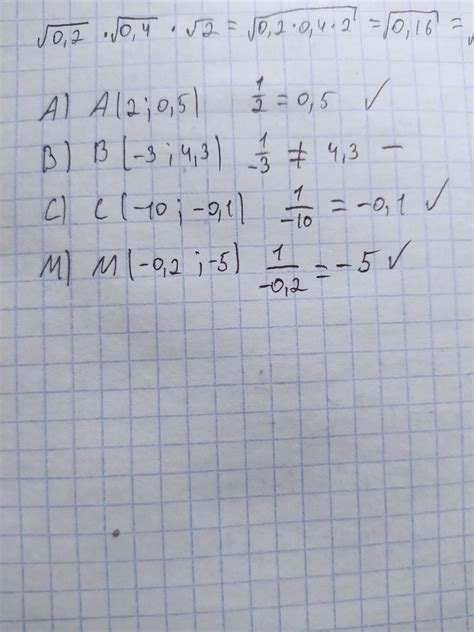 √0,2 · √0,4 · √2 = √0,2·0,4·2 = √0,16 =
A) A(2;0,5) 1/2 = 0,5 ✓
B) B(-3;4,3) 1/-3 ≠ 4,3 —
C) C(-10;-0,1) 1/-10 = -0,1 ✓
M) M(-0,2;-5) 1/-0,2 = -5 ✓